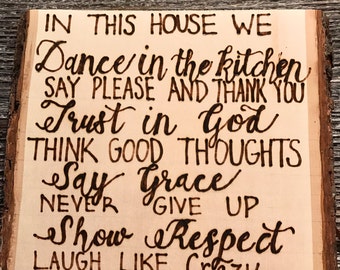 IN THIS HOUSE WE
Dance in the kitchen
SAY PLEASE AND THANK YOU
Trust in God
THINK GOOD THOUGHTS
Say Grace
NEVER GIVE UP
Show Respect
LAUGH LIKE Crazy